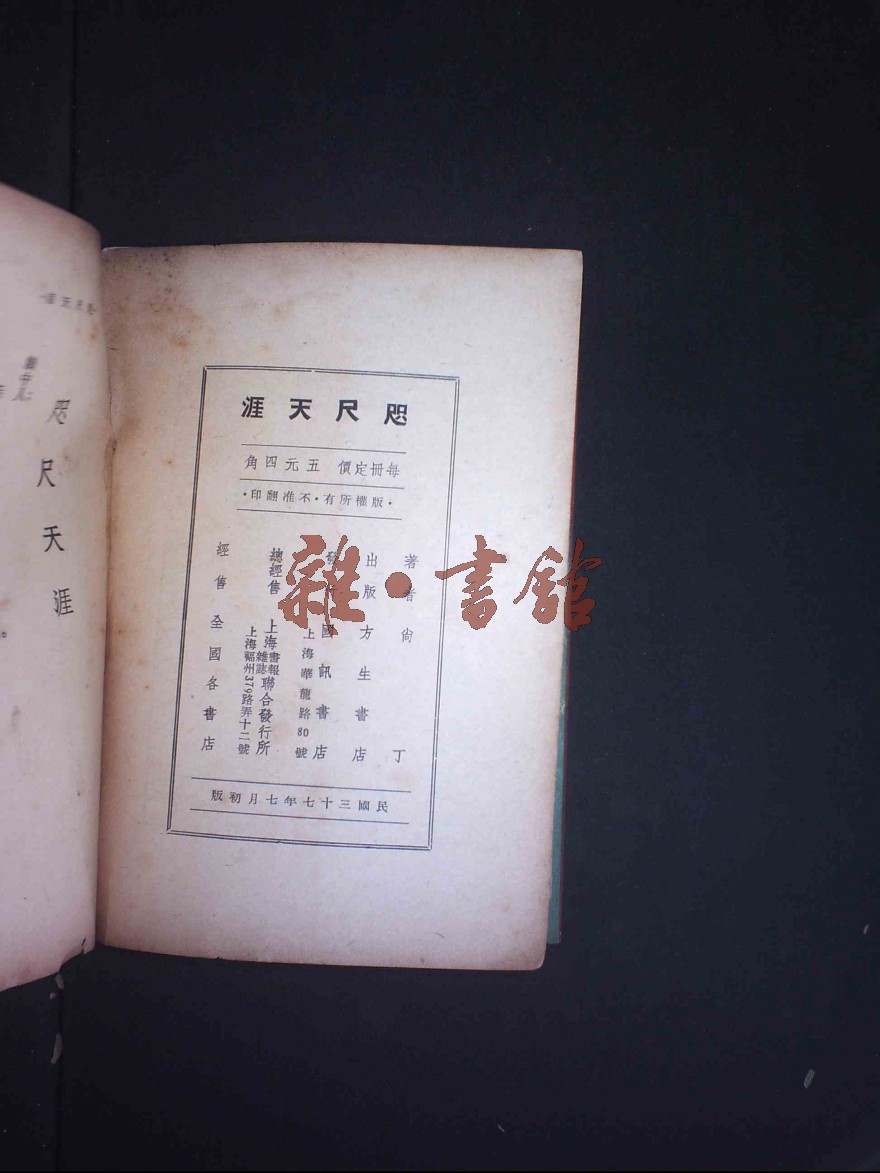 咫尺天涯
每冊定價 五元四角
·版權所有·不准翻印·
著者 尚 丁
出版 方生書店
國訊書店
上海華龍路80號
總經售 上海書報雜誌聯合發行所
上海福州路379弄十二號
經售 全國各書店
民國三十七年七月初版
咫尺天涯
雜·書館